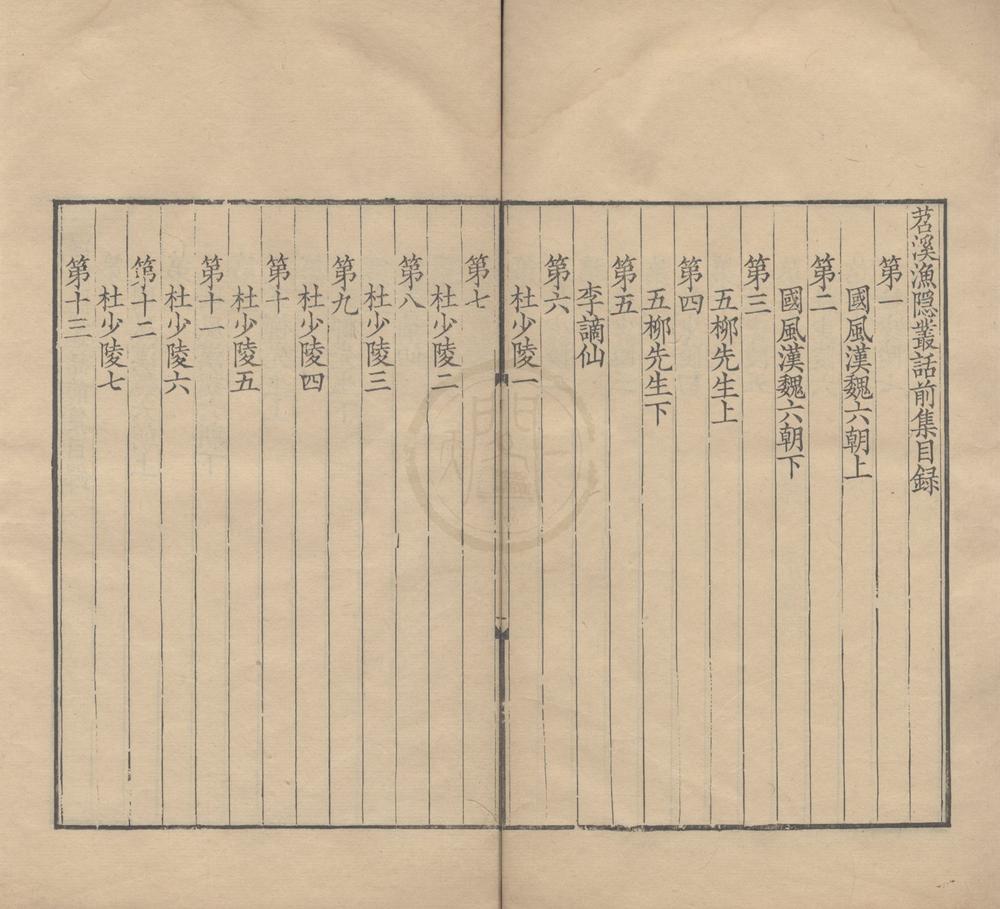 苕溪漁隱叢話前集目録
第一
國風漢魏六朝上
第二
國風漢魏六朝下
第三
五柳先生上
第四
五柳先生下
第五
李謫仙
第六
杜少陵一
第七
杜少陵二
第八
杜少陵三
第九
杜少陵四
第十
杜少陵五
第十一
杜少陵六
第十二
杜少陵七
第十三